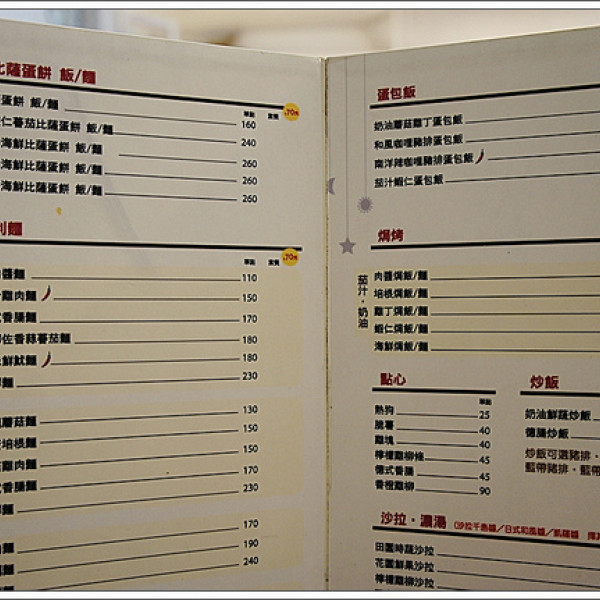 比薩蛋餅 飯/麵
單點 套餐
+70元
蛋餅 飯/麵 160
仁蕃茄比薩蛋餅 飯/麵 240
海鮮比薩蛋餅 飯/麵 260
海鮮比薩蛋餅 飯/麵 260
260
利麵
單點 套餐
+70元
醬麵 110
雞肉麵 150
式香腸麵 170
佐香蒜蕃茄麵 180
鮮魷麵 180
麵 230
蘑菇麵 130
培根麵 150
雞肉麵 150
式香腸麵 170
麵 230
170
麵 190
麵 240
蛋包飯
奶油蘑菇雞丁蛋包飯
和風咖哩豬排蛋包飯
南洋辣咖哩豬排蛋包飯
茄汁蝦仁蛋包飯
焗烤
茄汁・奶油
肉醬焗飯/麵
培根焗飯/麵
雞丁焗飯/麵
蝦仁焗飯/麵
海鮮焗飯/麵
點心
單點
熱狗 25
脆薯 40
雞塊 40
檸檬雞柳條 45
德式香腸 45
香橙雞柳 90
炒飯
奶油鮮蔬炒飯
德腸炒飯
炒飯可選豬排・
藍帶豬排・藍帶
沙拉・濃湯 (沙拉千島醬/日式和風醬/凱薩醬 擇
田園時蔬沙拉
花園鮮果沙拉
檸檬雞柳沙拉